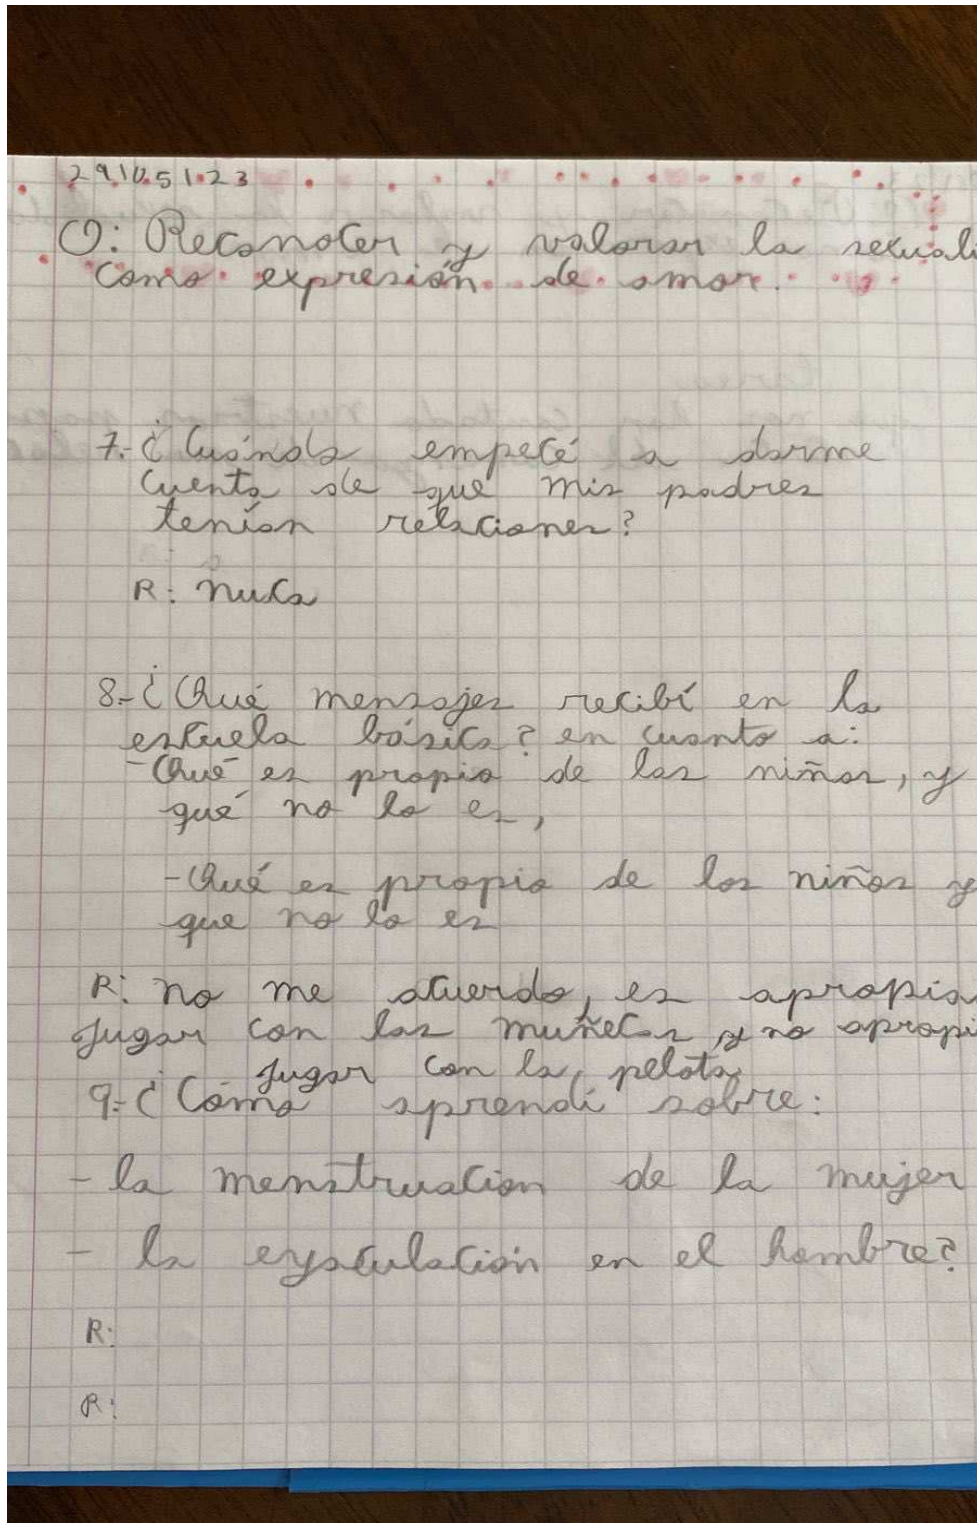 29.10.51.23
O: Reconocer y valorar la sexuali
como expresión de amor.
7.- ¿Cuándo empecé a darme
cuenta de que mis padres
tenían relaciones?
R: nuca
8.- ¿Qué mensajes recibí en la
escuela básica? en cuanto a:
- Qué es propio de las niñas, y
qué no lo es,
- Qué es propio de los niños y
que no lo es
R: no me acuerdo, es apropia
jugar con las muñecas, y no apropi
jugar con la pelota
9.- ¿Cómo aprendí sobre:
- la menstruación de la mujer
- la eyaculación en el hombre?
R:
R: